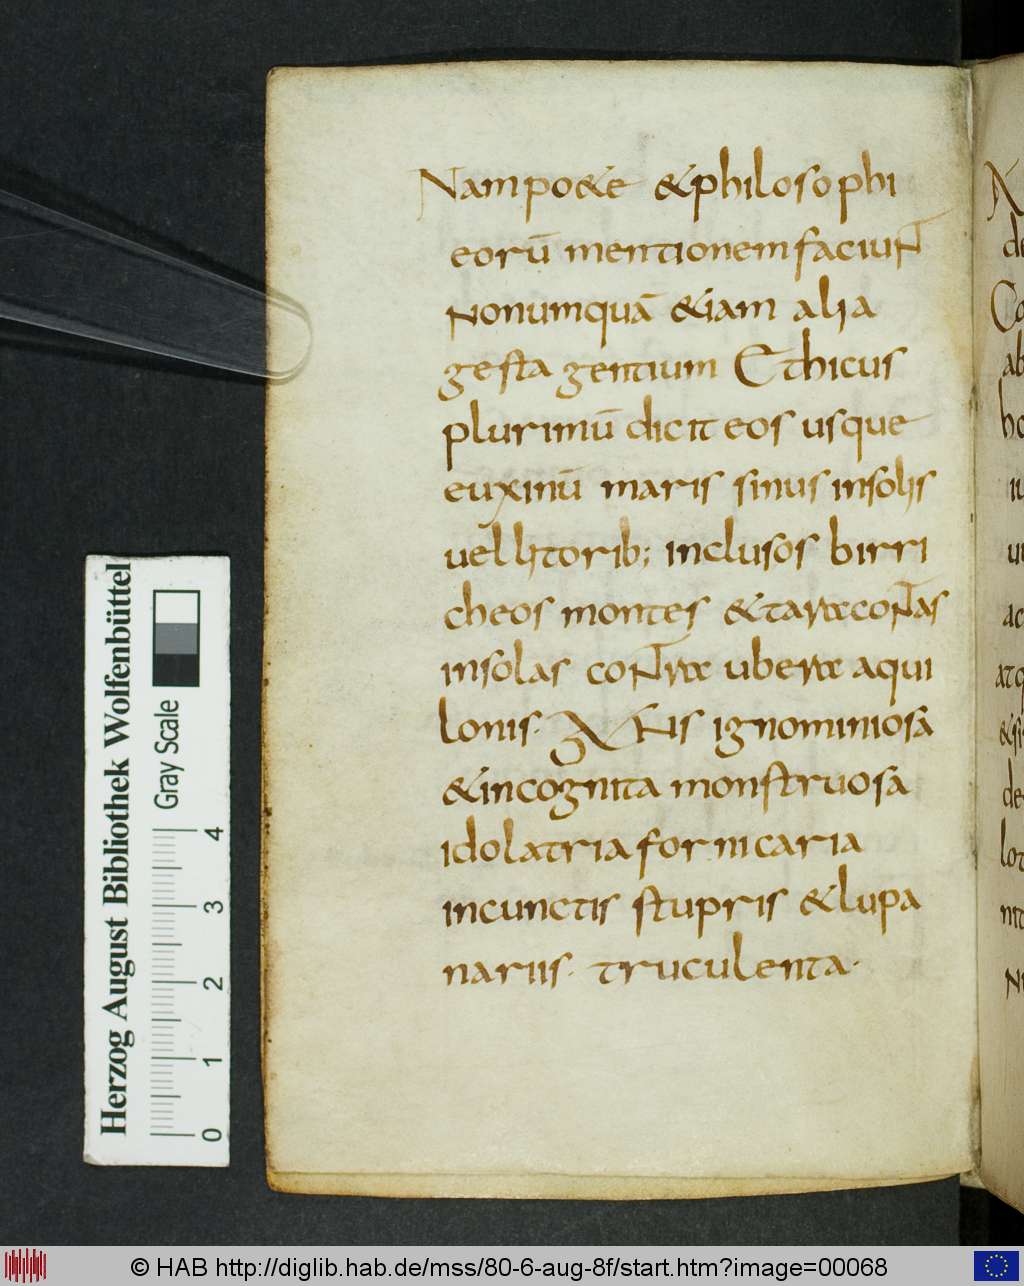 Nam po&e &philosophi
eorū mentionem faciunt
Nonumquā &iam alia
gesta gentium Ethicus
plurimū dicit eos usque
euxinū maris sinus insolis
uel litorib; inclusos birri
cheos montes &
insolas contra ubera aqui
lonis. Gens ignominiosa
&incognita monstruosa
idolatria fornicaria
incunctis stupris &lupa
nariis. truculenta.
Herzog August Bibliothek Wolfenbüttel
Gray Scale
0 1 2 3 4
© HAB http://diglib.hab.de/mss/80-6-aug-8f/start.htm?image=00068